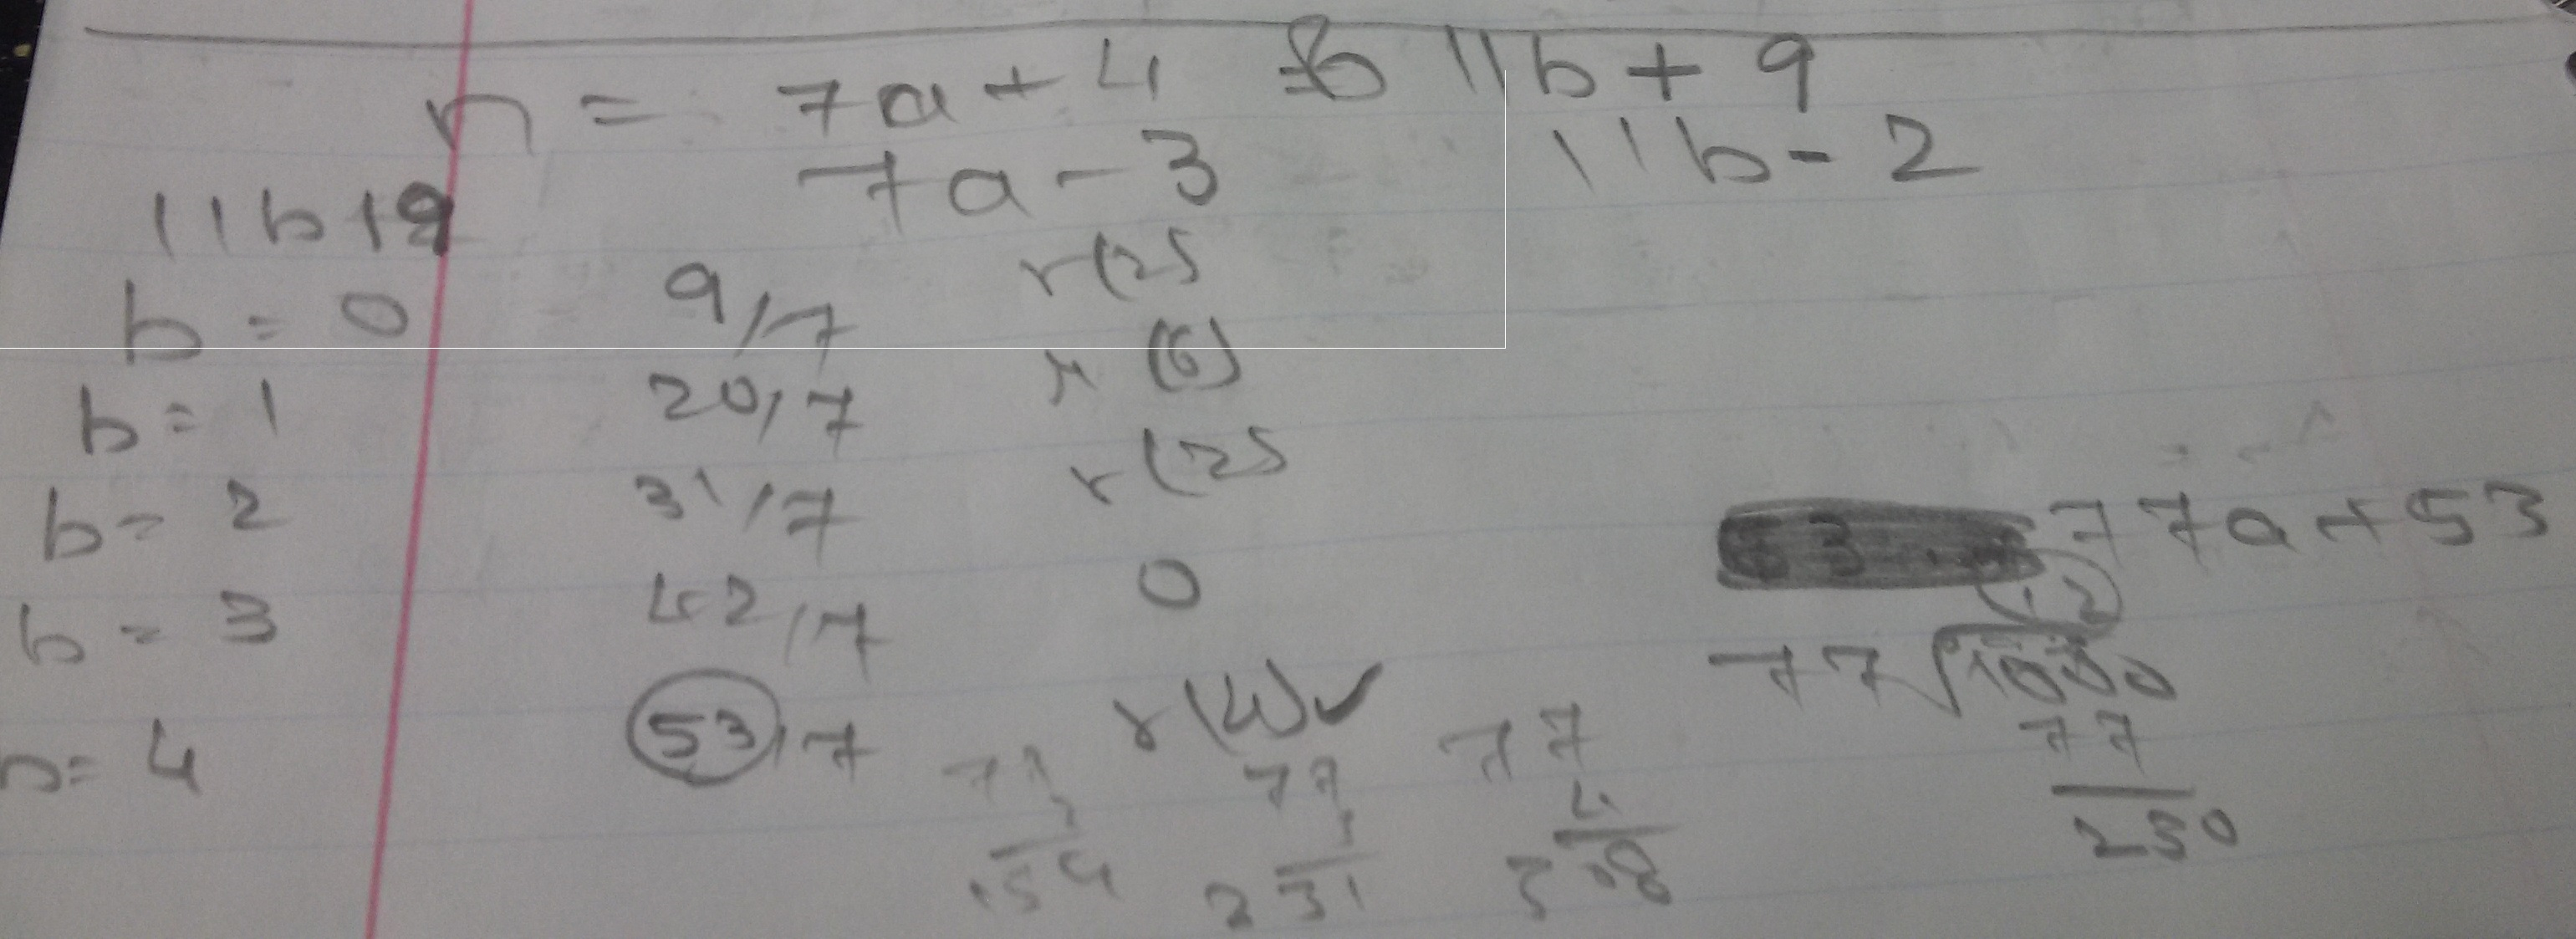 n = 7a + 4 11b + 9
7a - 3 11b - 2
11b + 9
b = 0 9/7 r(2)
b = 1 20/7 r(6)
b = 2 31/7 r(2)
b = 3 42/7 0
b = 4 53/7 r(4) ✓
77a + 53
12
77 1000
77
230
77 77 77
2 3 4
154 231 308